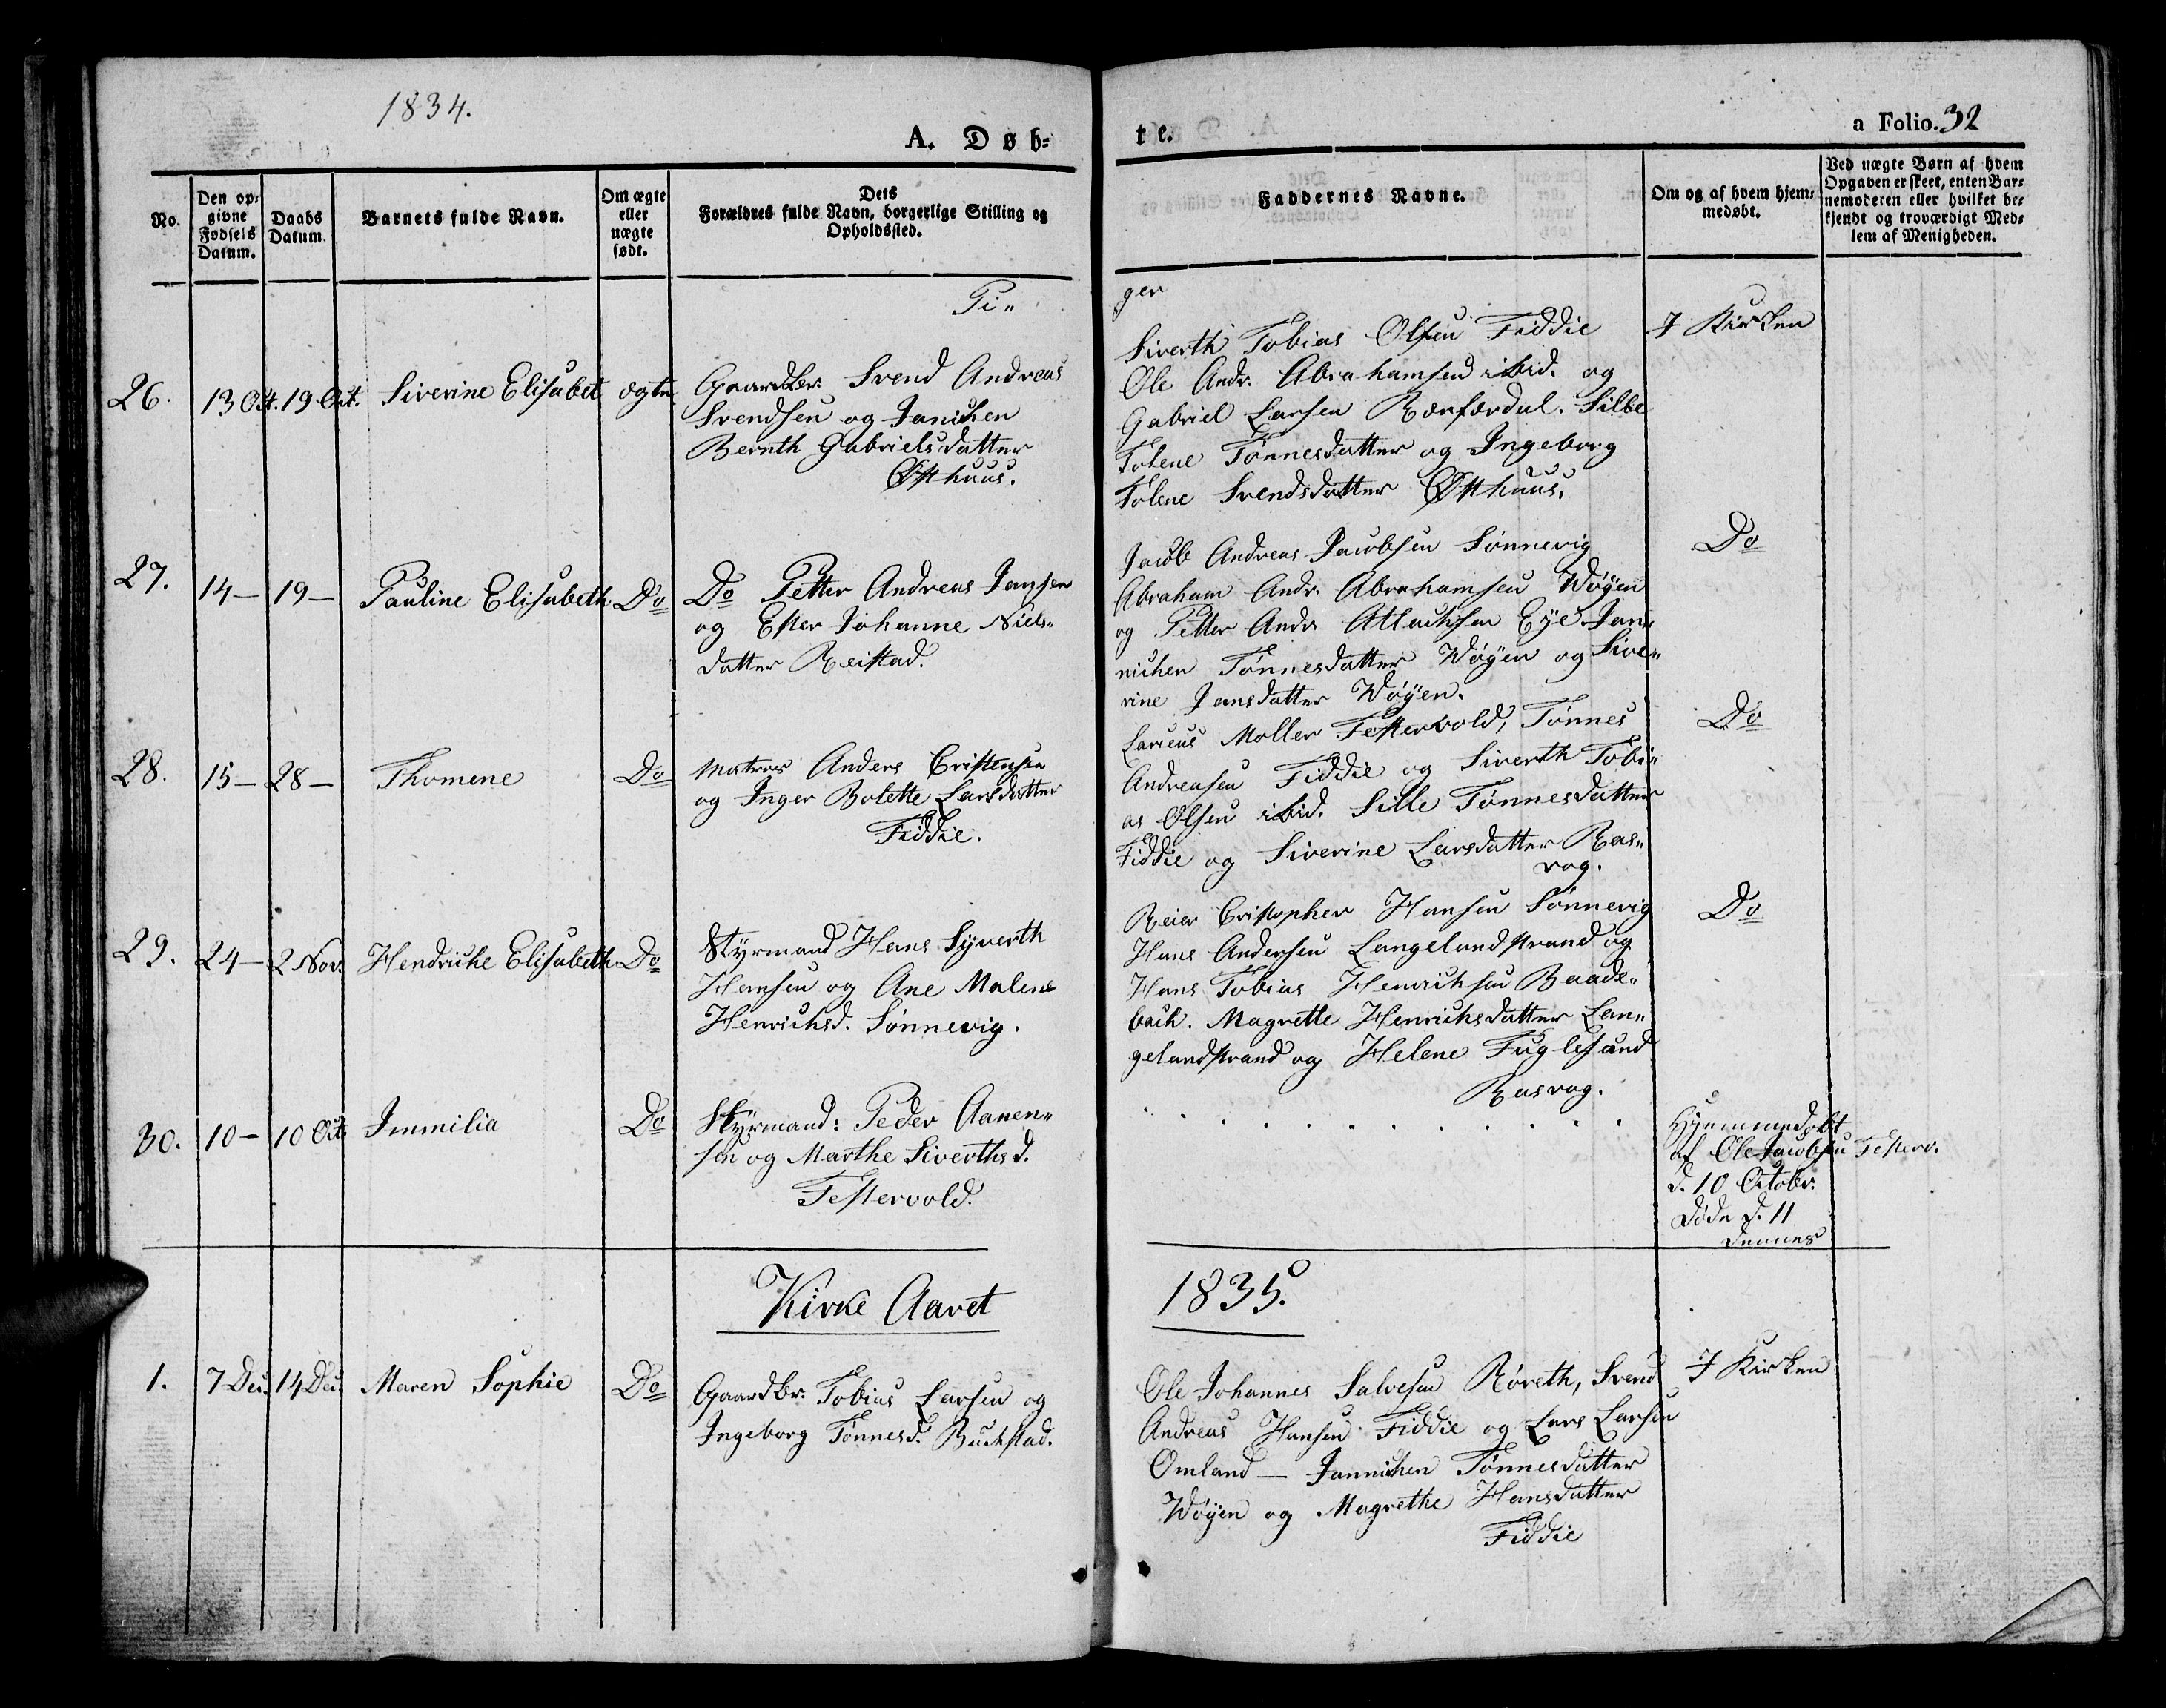 1834.
A. Døb-
te.
a Folio. 32
No.
Den op-
givne
Fødsels
Datum.
Daabs
Datum.
Barnets fulde Navn.
Om ægte
eller
uægte
født.
Dets
Forældres fulde Navn, borgerlige Stilling og
Opholdssted.
Faddernes Navne.
Om og af hvem hjem-
medøbt.
Ved uægte Børn af hvem
Opgaven er skeet, enten Bar-
nemoderen eller hvilket be-
kjendt og troværdigt Med-
lem af Menigheden.
Pi-
ger
26.
13 Oct.
19 Oct.
Siverine Elisabet
ægte
Gaardbr. Svend Andreas
Svendsen og Janichen
Bernth Gabrielsdatter
Østhuus.
Siverth Tobias Olsen Fiddie
Ole Andr. Abrahamsen ibid. og
Gabriel Larsen Rørfærdal. Sille
Tolene Tønnesdatter og Ingeborg
Tolene Svendsdatter Østhuus.
I Kirken
27.
14 —
19 —
Pauline Elisabeth
Do
Do Petter Andreas Jansen
og Ester Johanne Niels-
datter Reistad.
Jacob Andreas Jacobsen Sønnevig
Abraham Andr. Abrahamsen Wøyen
og Petter Andr. Atlachsen Eye. Jan-
nichen Tønnesdatter Wøyen og Sive-
rine Jansdatter Wøyen.
Do
28.
15 —
28 —
Thomene
Do
Matros Anders Cristensen
og Inger Bolette Larsdatter
Fiddie.
Larieus Moller Festervold, Tønnes
Andreasen Fiddie og Siverth Tobi-
as Olsen ibid. Sille Tønnesdatter
Fiddie og Siverine Larsdatter Ras-
vog.
Do
29.
24 —
2 Nov.
Hendriche Elisabeth
Do
Styrmand Hans Syverth
Hansen og Ane Malene
Henrichsd. Sønnevig.
Reier Cristopher Hansen Sønnevig
Hans Andersen Langelandstrand og
Hans Tobias Henrichsen Baade-
bach. Magrette Henrichsdatter Lan-
gelandstrand og Helene Fuglesund
Rasvog.
Do
30.
10 —
10 Oct.
Immilia
Do
Styrmand: Peder Aanen-
sen og Marthe Siverthsd.
Festervold.
Hjemmedøbt
af Ole Jacobsen Festerv.
d. 10 Octobr.
døde d. 11
dennes
Kirke Aaret
1835.
1.
7 Dec.
14 Dec.
Maren Sophie
Do
Gaardbr. Tobias Larsen og
Ingeborg Tønnesd. Buchstad.
Ole Johannes Salvesen Røveth, Svend
Andreas Hansen Fiddie og Lars Larsen
Omland — Jannichen Tønnesdatter
Wøyen og Magrethe Hansdatter
Fiddie
I Kirken